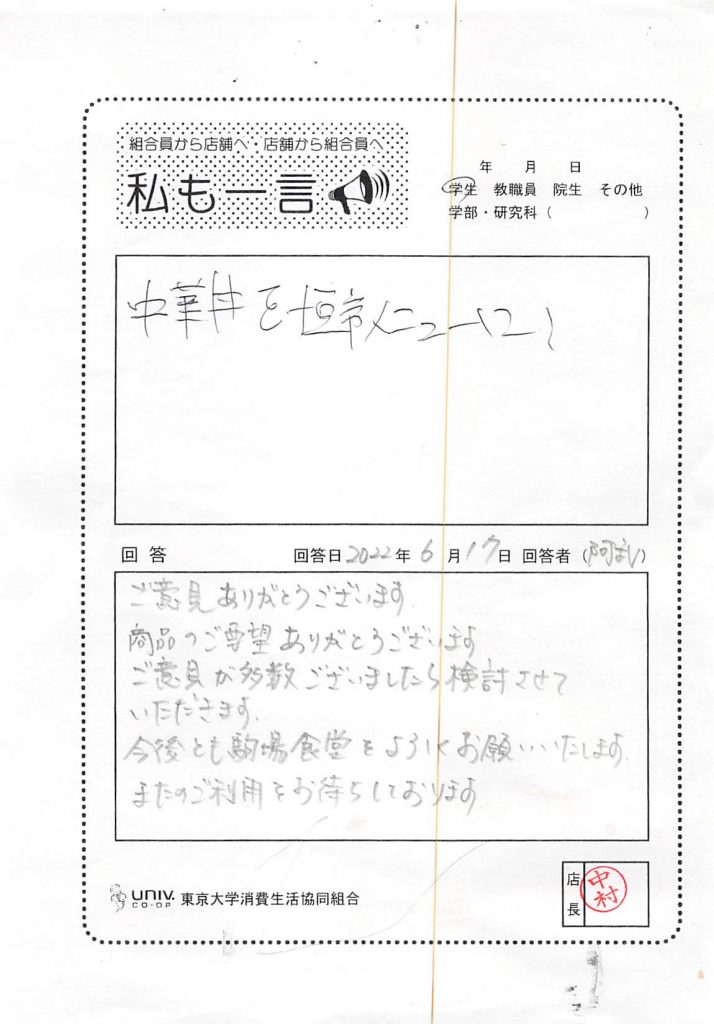 組合員から店舗へ・店舗から組合員へ
私も一言
年 月 日
学生 教職員 院生 その他
学部・研究科( )
中華丼を恒常メニューに!
回答 回答日2022年6月17日 回答者( )
ご意見ありがとうございます
商品のご要望ありがとうございます
ご意見が多数ございましたら検討させて
いただきます.
今後とも駒場食堂をよろしくお願いいたします.
またのご利用をお待ちしております
UNIV.
CO-OP
東京大学消費生活協同組合
店長
中村